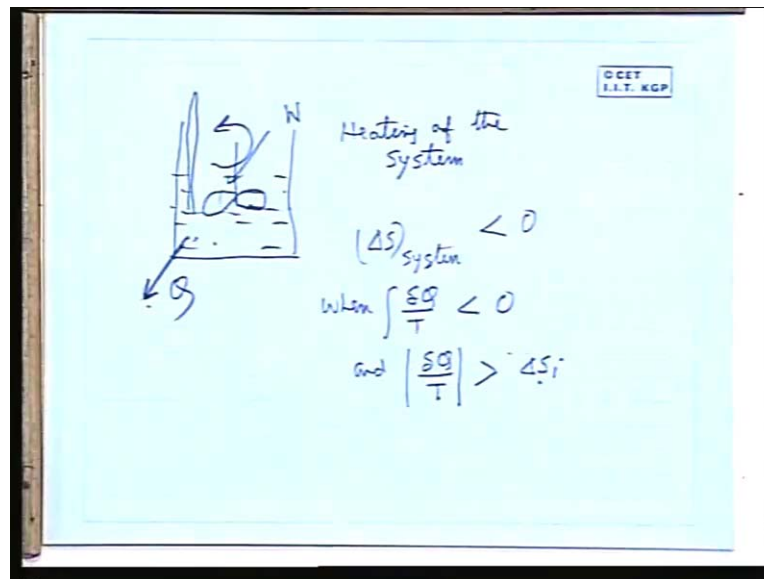 © CET
I.I.T. KGP
W
Heating of the
system
(ΔS)system < 0
Q
when ∫ δQ/T < 0
and |δQ/T| > ΔSi